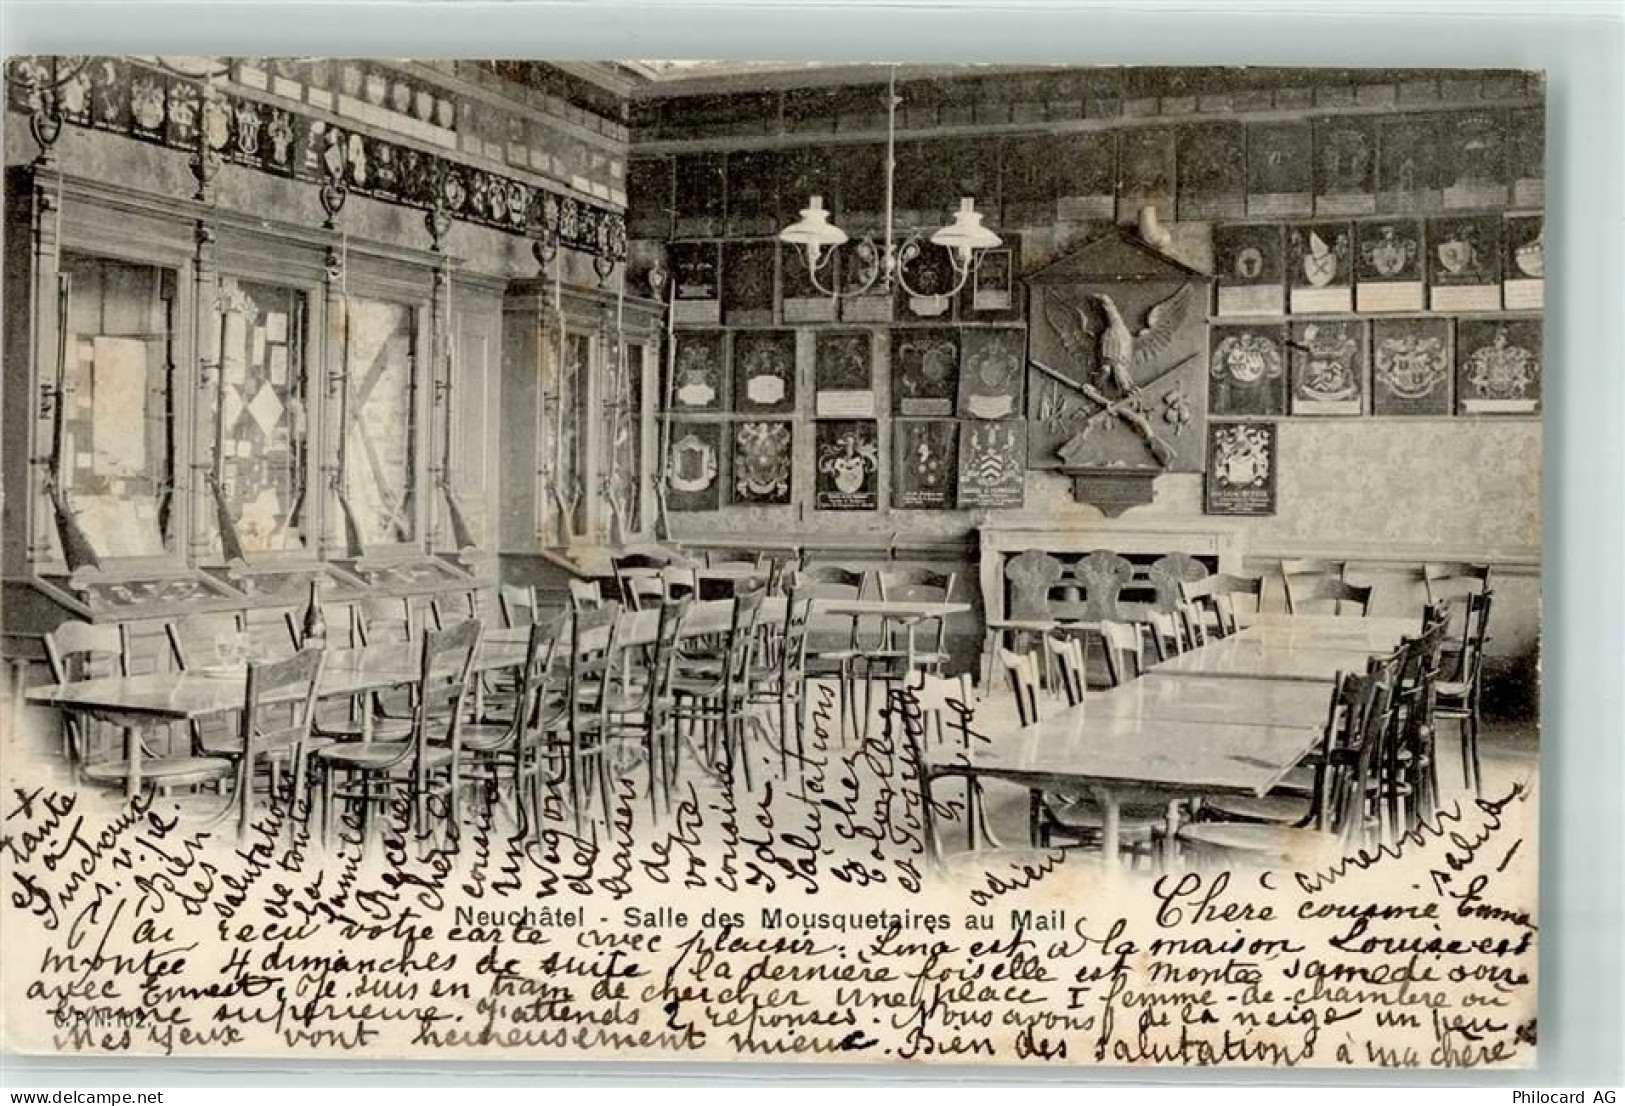 Neuchâtel - Salle des Mousquetaires au Mail
Chère cousine Emma
J'ai reçu votre carte avec plaisir. Lina est à la maison Louise est
montée 4 dimanches de suite, la dernière fois elle est montée samedi soir
avec Ernest. Je suis en train de chercher une place I femme-de-chambre ou
bonne supérieure. J'attends 2 réponses. Nous avons de la neige un peu
Mes yeux vont heureusement mieux. Bien des salutations à ma chère
tante
et à
G. v. f. pl.
Bien
des
salutations
de toute
la
famille
Recevez
chère
cousine
un
wagon
de
baisers
de
votre
cousine
Ida.
Salutations
à chez
et
G. v. f. pl.
adieu
aurevoir
salut
Philocard AG